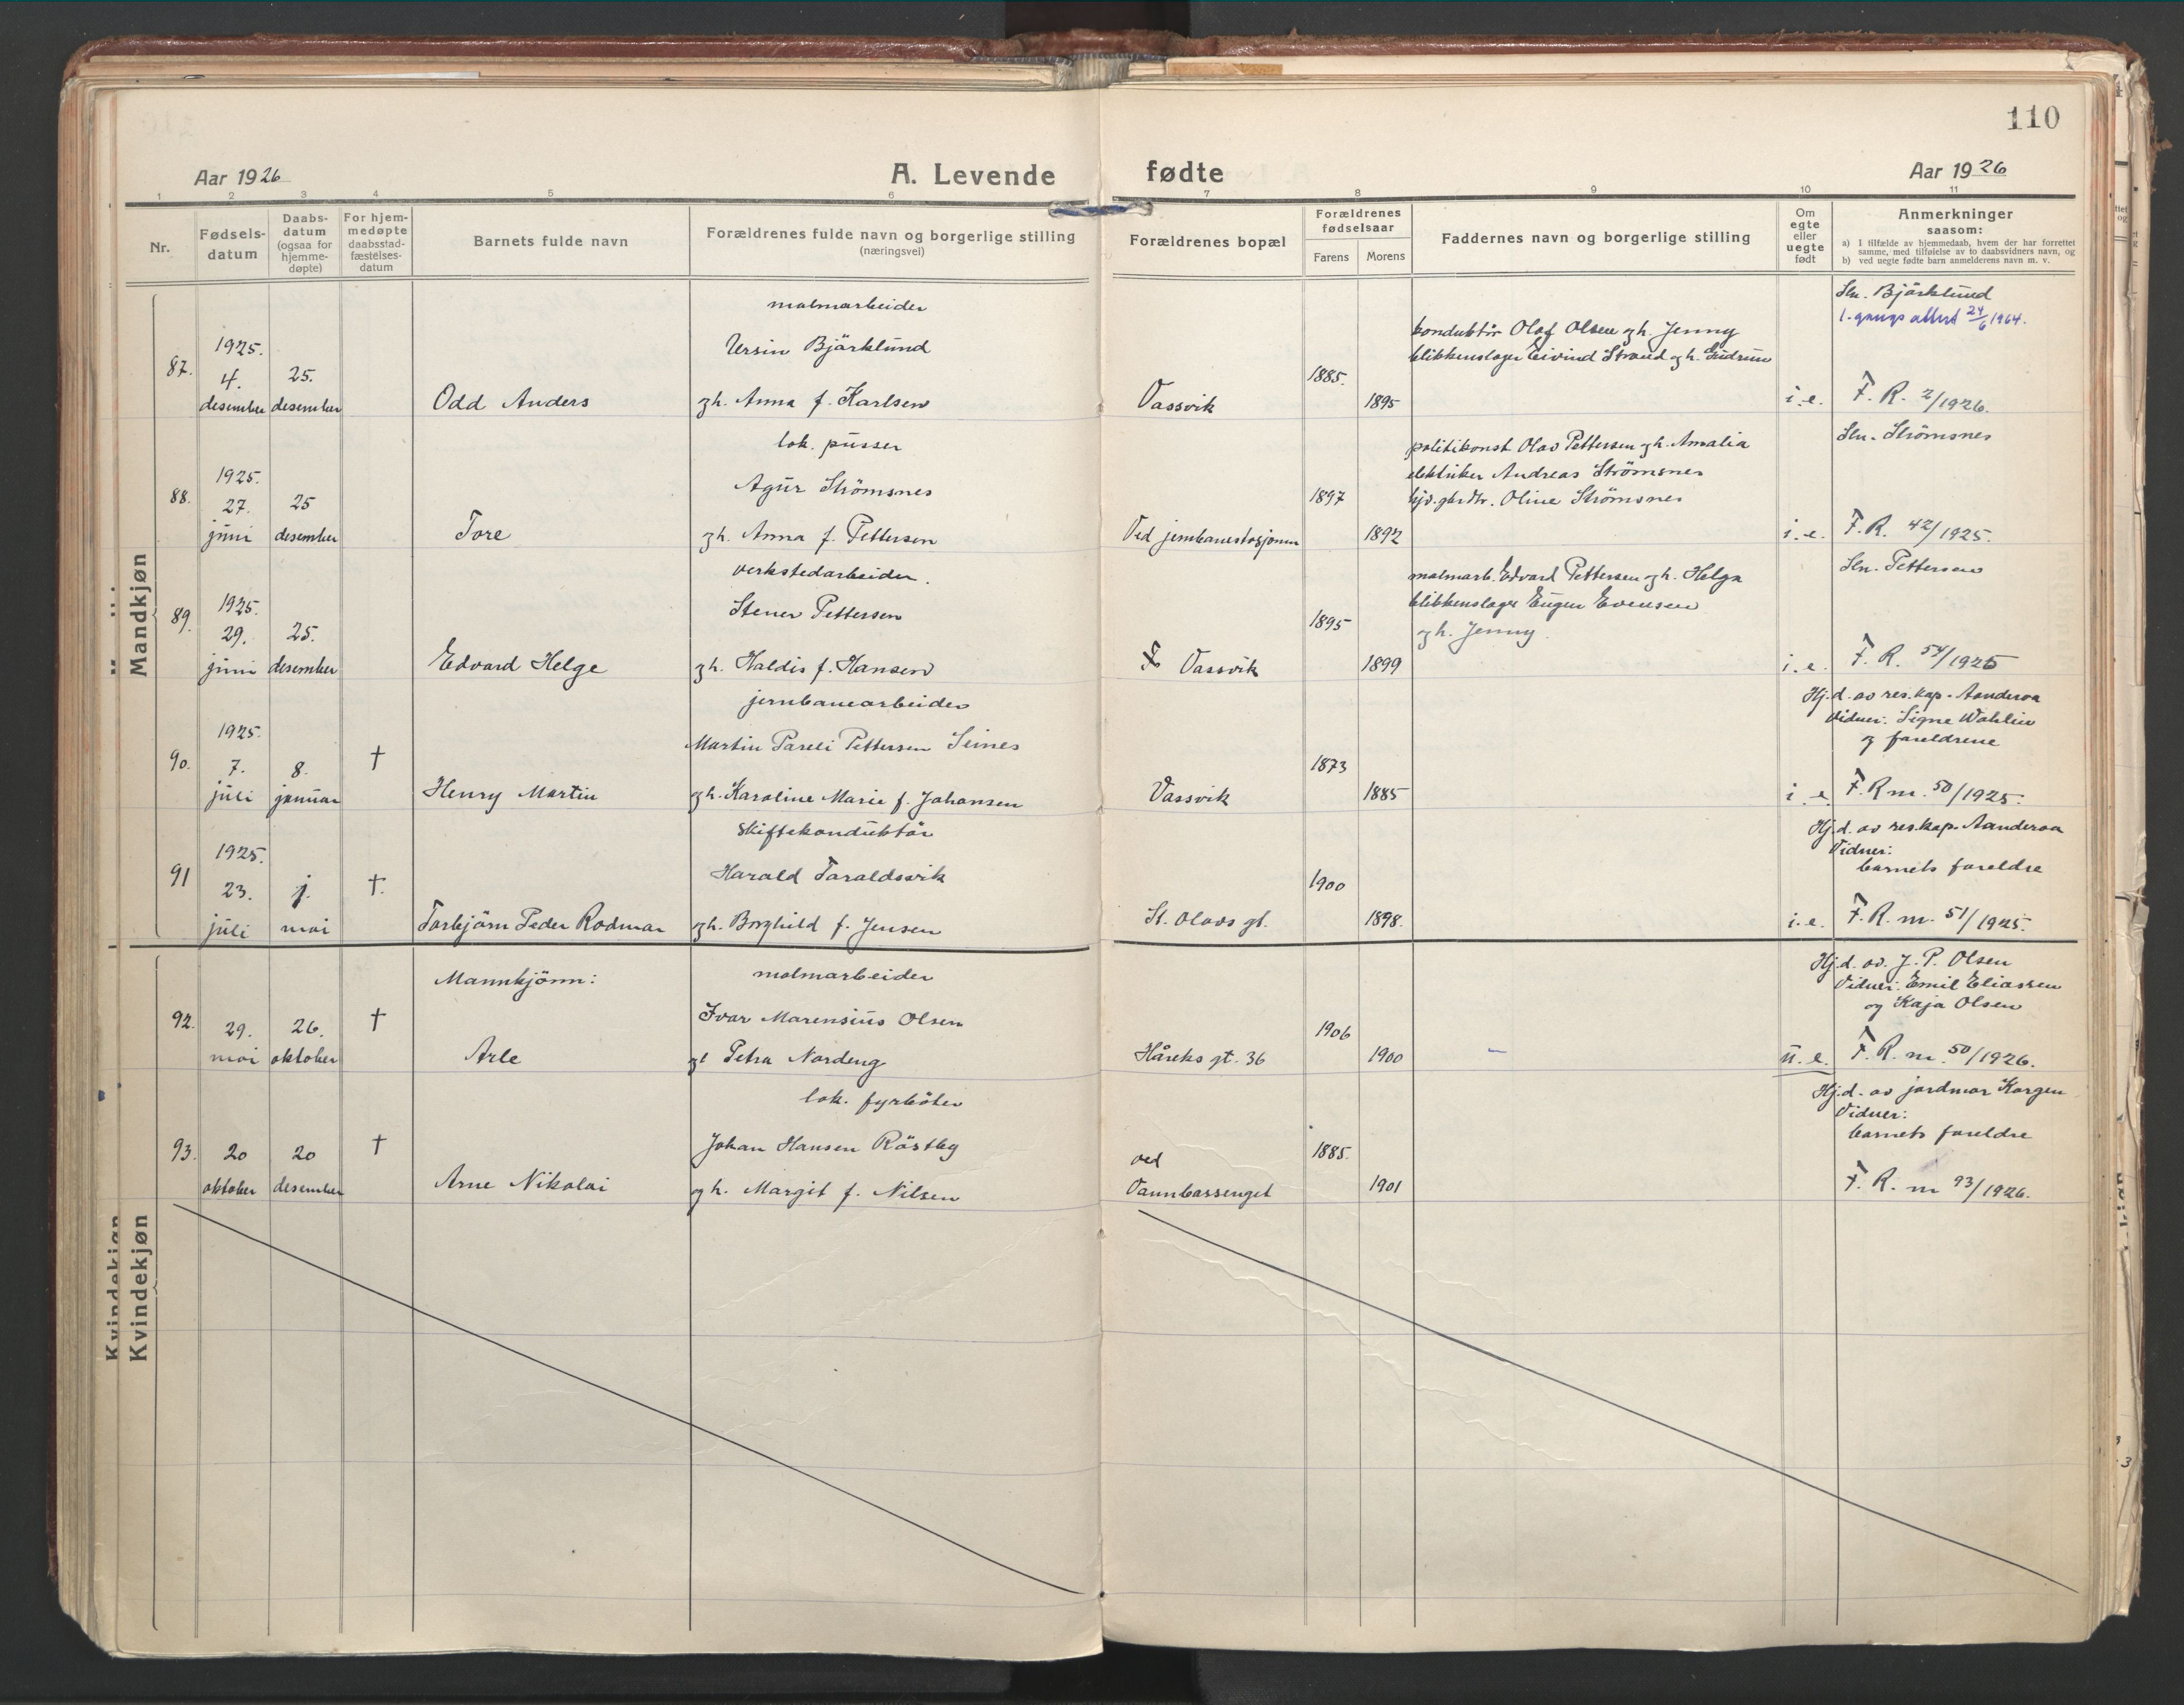 110
Aar 1926
A. Levende
fødte
Aar 1926
1 2 3 4 5 6 7 8 9 10 11
Nr.
Fødsels-
datum
Daabs-
datum
(ogsaa for
hjemme-
døpte)
For hjem-
medøpte
daabsstad-
fæstelses-
datum
Barnets fulde navn
Forældrenes fulde navn og borgerlige stilling
(næringsvei)
Forældrenes bopæl
Forældrenes
fødselsaar
Farens Morens
Faddernes navn og borgerlige stilling
Om
egte
eller
uegte
født
Anmerkninger
saasom:
a) I tilfælde av hjemmedaab, hvem der har forrettet
samme, med tilføielse av to daabsvidners navn, og
b) ved uegte fødte barn anmelderens navn m. v.
Mandkjøn
87.
1925.
4.
desember
25.
desember
Odd Anders
malmarbeider
Ursin Bjärklund
gh. Anna f. Karlsen
Vassvik
1885.
1895
konduktör Olaf Olsen gh. Jenny
blikkenslager Eivind Strand gh. Gudrun
i.e.
Sln. Bjärklund
1. gangs attest 24/6 1964.
F. R. 2/1926.
88.
1925.
27.
juni
25
desember
Tore
lok. pusser
Agur Strömsnes
gh. Anna f. Pettersen
Ved jernbanestasjonen
1897
1892
politikonst. Olav Pettersen gh. Amalia
elektriker Andreas Strömsnes
Oline Strömsnes
i.e.
Sln. Strömsnes
F. R. 42/1925.
89.
1925.
29.
juni
25.
desember
Edvard Helge
verkstedarbeider.
Stener Pettersen
gh. Haldis f. Hansen
Vassvik
1895
1899
malmarb. Edvard Pettersen gh. Helga
blikkenslager Eugen Evensen
gh. Jenny.
i.e.
Sln. Pettersen
F. R. 54/1925
90.
1925.
7.
juli
8.
januar
†
Henry Martin
jernbanearbeider
Martin Pareli Pettersen Seines
gh. Karoline Marie f. Johansen
Vassvik
1873
1885
i.e.
Hj.d. av res. kap. Aanderaa
Vidner: Signe Wahlin
og foreldrene
F. R. nr. 50/1925.
91
1925.
23.
juli
1.
mai
†.
Torbjörn Peder Rodmar
skiftekonduktör
Harald Taraldsvik
gh. Borghild f. Jensen
St. Olavs gt.
1900
1898.
i.e.
Hj.d. av res. kap. Aanderaa
Vidner:
barnets foreldre
F. R. nr. 51/1925.
Kvindekjøn
Kvindekjøn
Mannkjönn:
92.
29.
mai
26.
oktober
†
Arle
malmarbeider
Ivar Marensius Olsen
og Petra Nordeng
Håreks gt. 36
1906
1900
–
u.e.
Hj.d. av. J. P. Olsen
Vidner: Emil Eliassen
og Kaja Olsen
F. R. nr. 50/1926.
93.
20
oktober
20
desember
†
Arne Nikolai
lok. fyrböter
Johan Hansen Röstby
og h. Margit f. Nilsen
ved
Vannbassenget
1885.
1901
Hj.d. av jordmor Korgen
Vidner:
barnets foreldre
F. R. nr 93/1926.